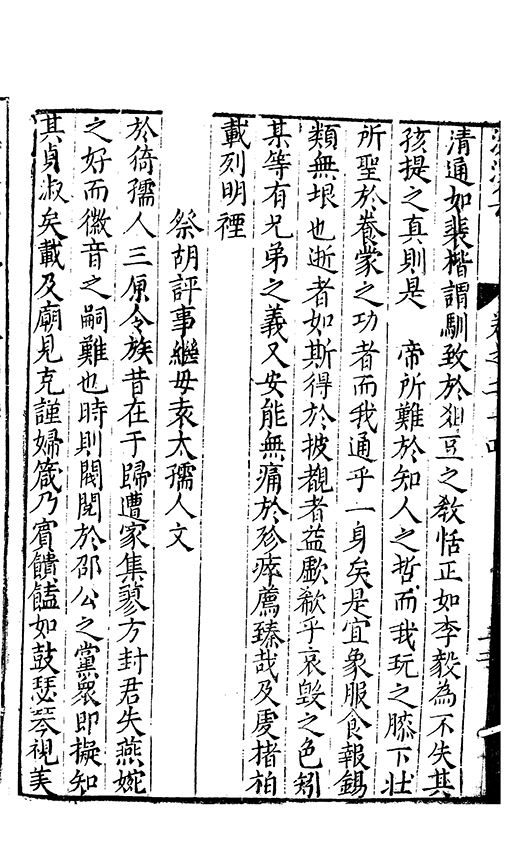 清通如裴楷謂馴致於俎豆之教恬正如李毅為不失其
孩提之真則是　帝所難於知人之哲而我玩之膝下壯
所聖於養蒙之功者而我通乎一身矣是宜象服食報錫
類無垠也逝者如斯得於披覩者益歔欷乎哀毀之色矧
某等有兄弟之義又安能無痛於殄瘁薦臻哉及虔楮栢
載列明禋
祭胡評事繼毋袁太孺人文
於倚孺人三原令族昔在于歸遭家集蓼方封君失燕婉
之好而徽音之嗣難也時則閥閱於邵公之黨衆即擬知
其貞淑矣載及廟見克謹婦箴乃賓饋饁如鼓瑟琴視美
卷之二十四